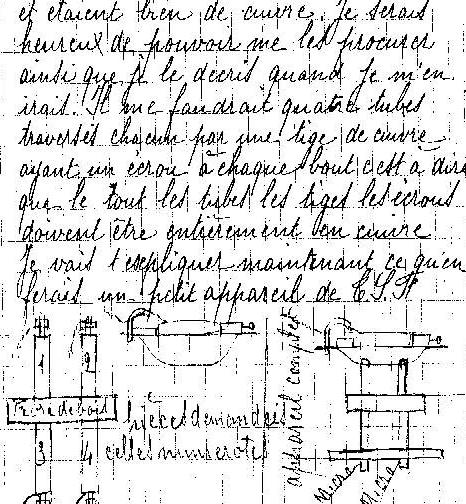 et étaient bien de cuivre. Je serais
heureux de pouvoir me les procurer
ainsi que je le décris quand je m'en
irais. Il me faudrait quatre tubes
traversés chacun par une tige de cuivre
ayant un écrou à chaque bout c'est à dire
que le tout les tubes les tiges les écrous
doivent être entièrement en cuivre
Je vais t'expliquer maintenant ce qu'en
ferais un petit appareil de T.S.F
1
2
de bois
3
4
pièces demandées
celles numérotés
appareil complet
Micra
Micra